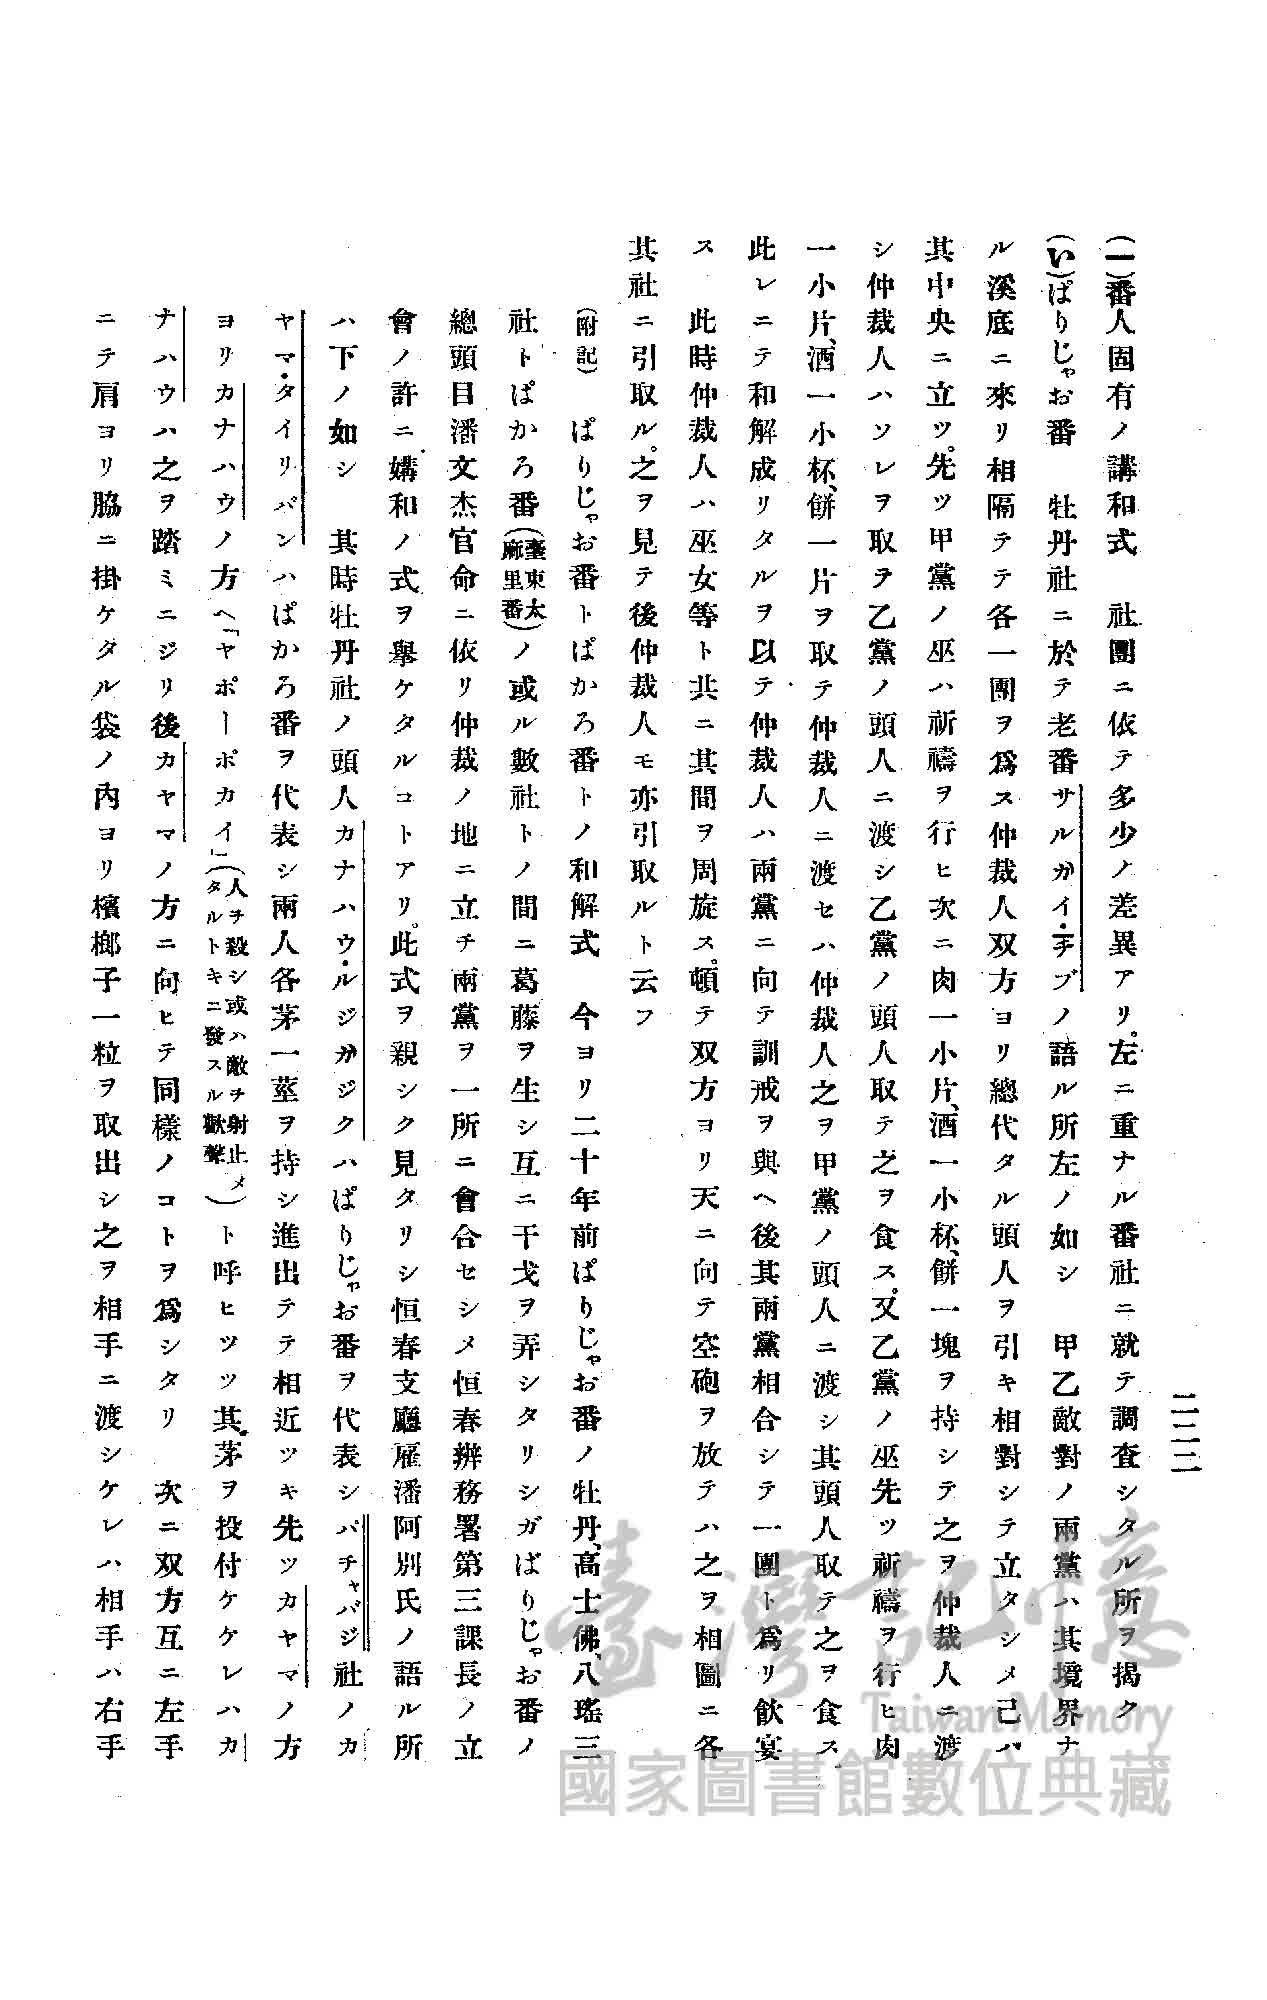 二三二
(一)番人固有ノ講和式　社團ニ依テ多少ノ差異アリ。左ニ重ナル番社ニ就テ調査シタル所ヲ揭ク
(い)ぱりじゃお番　牡丹社ニ於テ老番サルガイ・チブノ語ル所左ノ如シ　甲乙敵對ノ兩黨ハ其境界ナ
ル溪底ニ來リ相隔テテ各一團ヲ爲ス仲裁人双方ヨリ總代タル頭人ヲ引キ相對シテ立タシメ己ハ
其中央ニ立ツ。先ツ甲黨ノ巫ハ祈禱ヲ行ヒ次ニ肉一小片、酒一小杯、餅一塊ヲ持シテ之ヲ仲裁人ニ渡
シ仲裁人ハソレヲ取テ乙黨ノ頭人ニ渡シ乙黨ノ頭人取テ之ヲ食ス。又乙黨ノ巫先ツ祈禱ヲ行ヒ肉
一小片、酒一小杯、餅一片ヲ取テ仲裁人ニ渡セハ仲裁人之ヲ甲黨ノ頭人ニ渡シ其頭人取テ之ヲ食ス、
此レニテ和解成リタルヲ以テ仲裁人ハ兩黨ニ向テ訓戒ヲ與ヘ後其兩黨相合シテ一團ト爲リ飮宴
ス　此時仲裁人ハ巫女等ト共ニ其間ヲ周旋ス。頓テ双方ヨリ天ニ向テ空砲ヲ放テハ之ヲ相圖ニ各
其社ニ引取ル。之ヲ見テ後仲裁人モ亦引取ルト云フ
(附記)　ぱりじゃお番トぱかろ番トノ和解式　今ヨリ二十年前ぱりじゃお番ノ牡丹、高士佛、八瑤三
社トぱかろ番(臺東太麻里番)ノ或ル數社トノ間ニ葛藤ヲ生シ互ニ干戈ヲ弄シタリシガぱりじゃお番ノ
總頭目潘文杰官命ニ依リ仲裁ノ地ニ立チ兩黨ヲ一所ニ會合セシメ恒春辨務署第三課長ノ立
會ノ許ニ媾和ノ式ヲ擧ケタルコトアリ。此式ヲ親シク見タリシ恒春支廳雇潘阿別氏ノ語ル所
ハ下ノ如シ　其時牡丹社ノ頭人カナハウ・ルジガジクハぱりじゃお番ヲ代表シバチャバジ社ノカ
ヤマ・タイリバンハぱかろ番ヲ代表シ兩人各茅一莖ヲ持シ進出テテ相近ツキ先ツカヤマノ方
ヨリカナハウノ方ヘ「ヤポーポカイ」(人ヲ殺シ或ハ敵ヲ射止メタルトキニ發スル歡聲)ト呼ヒツツ其茅ヲ投付ケケレハカ
ナハウハ之ヲ踏ミニジリ後カヤマノ方ニ向ヒテ同樣ノコトヲ爲シタリ　次ニ双方互ニ左手
ニテ肩ヨリ脇ニ掛ケタル袋ノ內ヨリ檳榔子一粒ヲ取出シ之ヲ相手ニ渡シケレハ相手ハ右手
臺灣記憶
Taiwan Memory
國家圖書館數位典藏